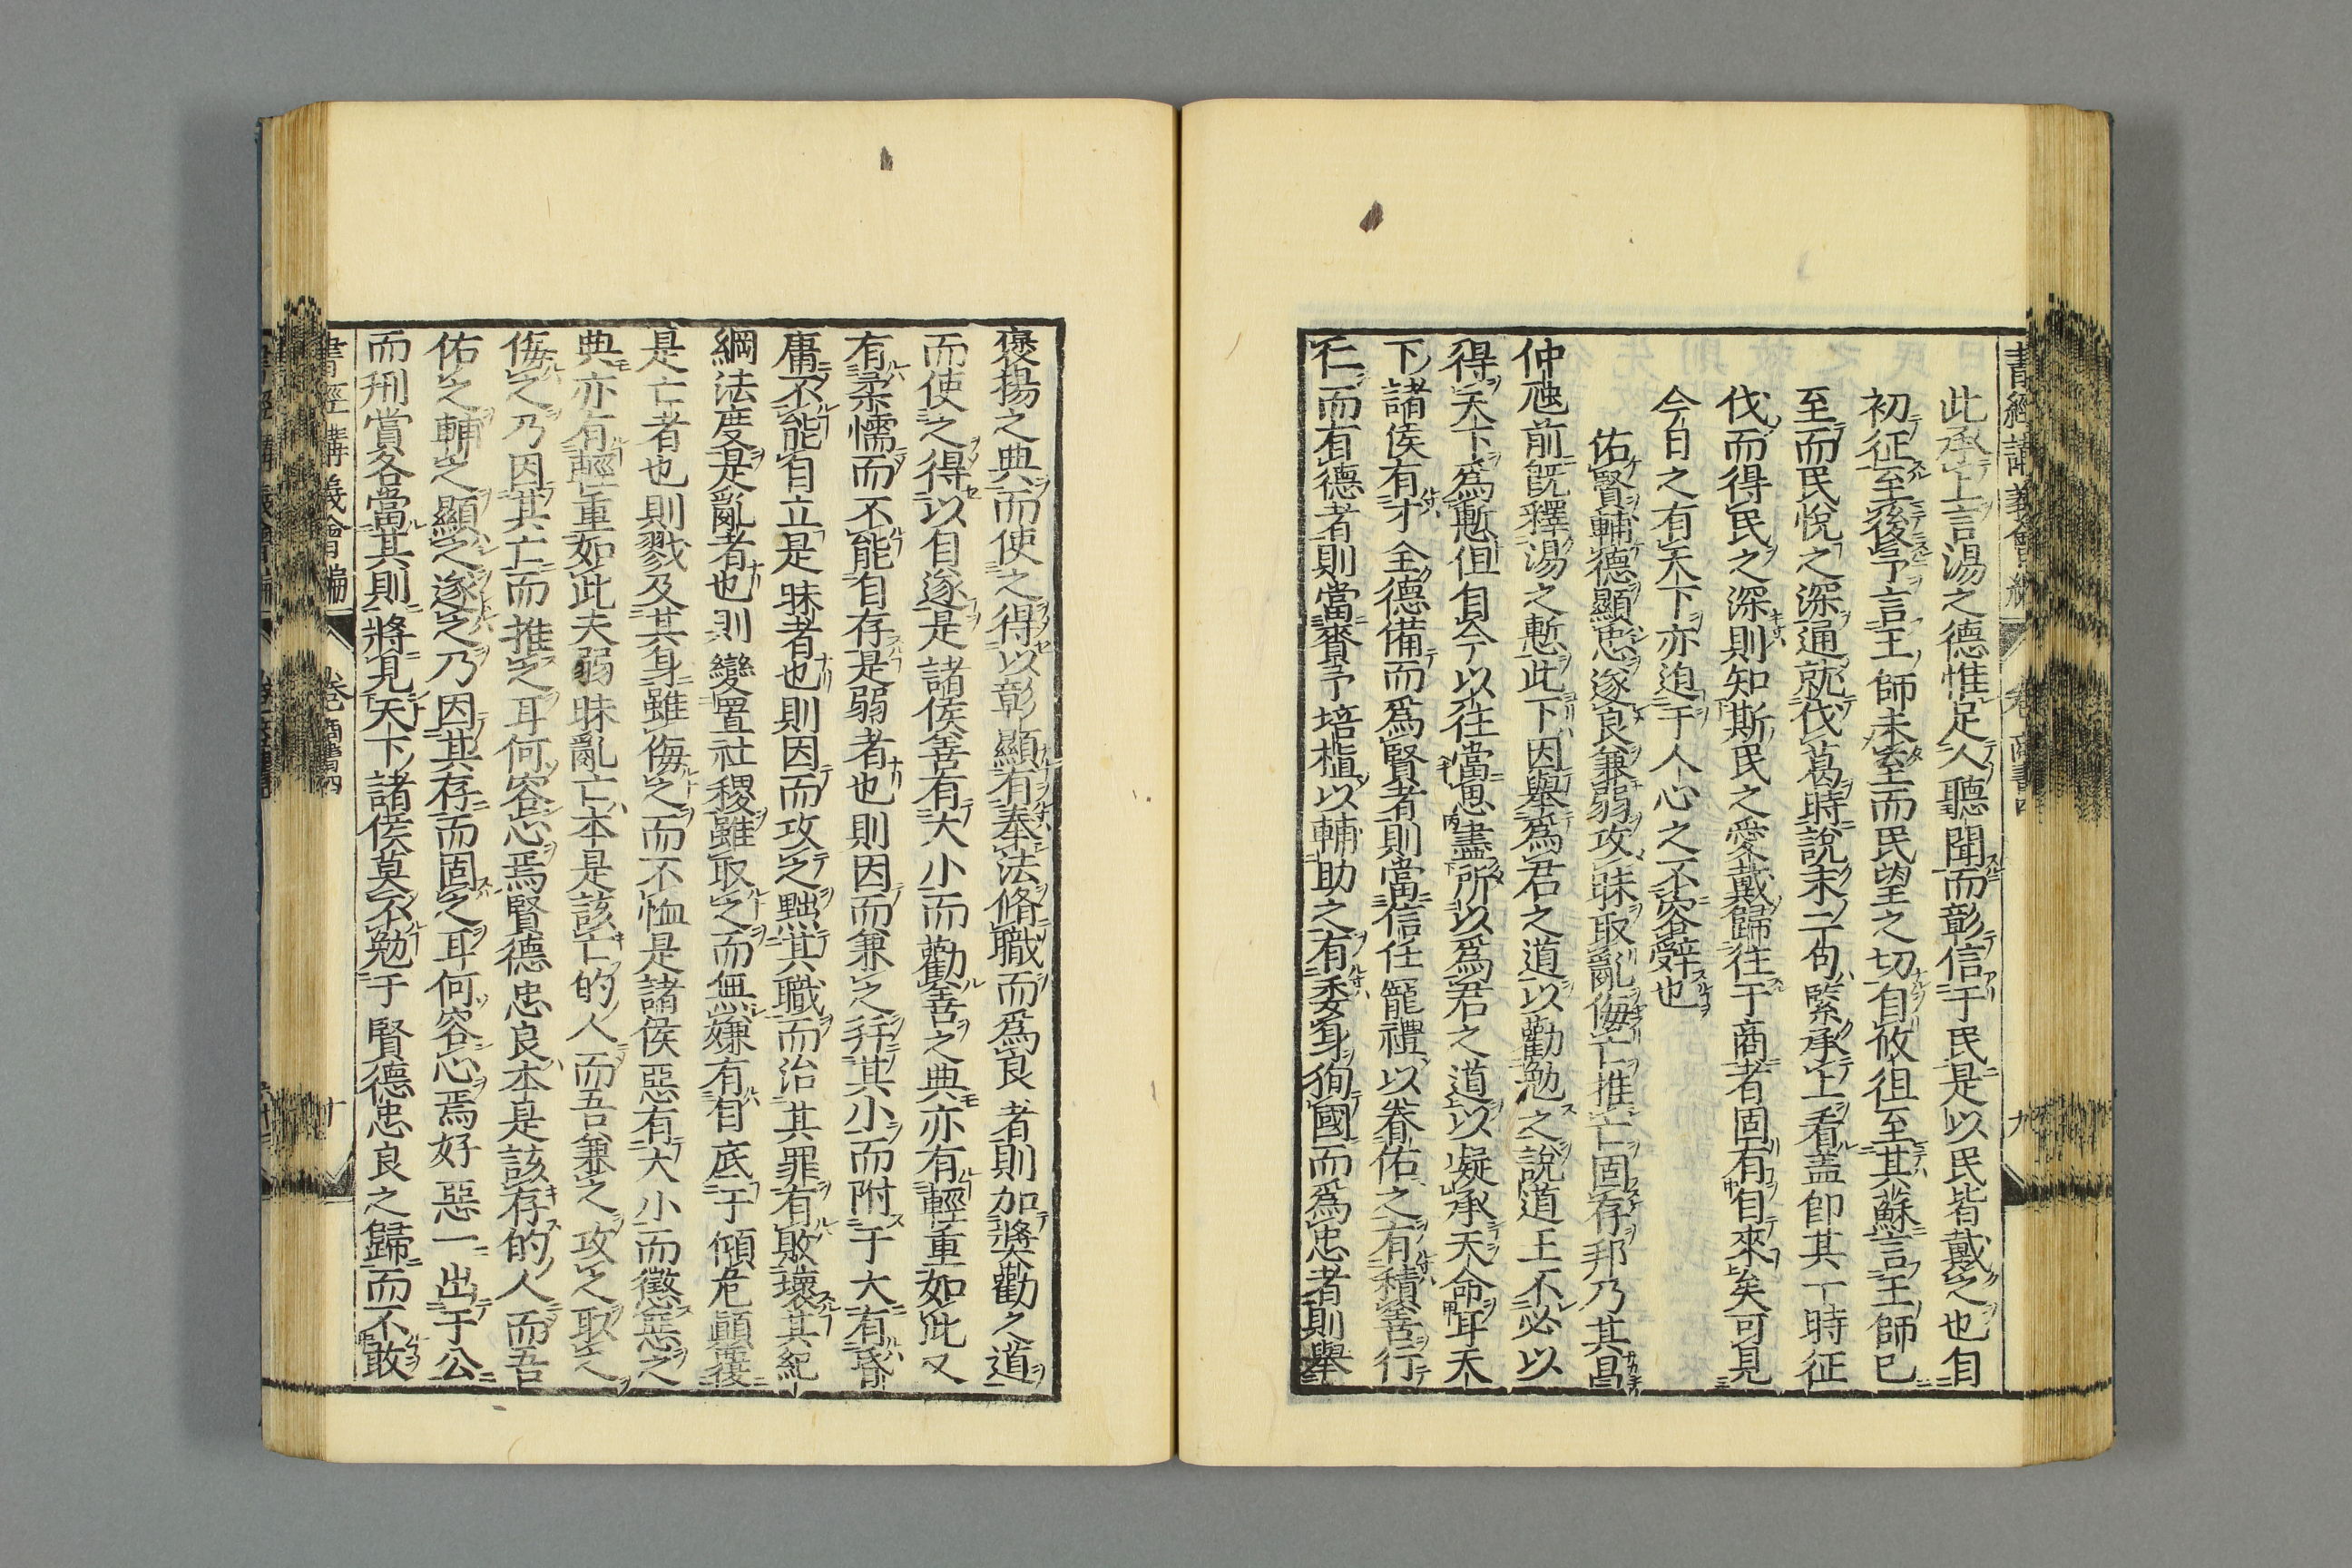 書經講義會編 卷 商書四 九
此承上言湯之德惟足人聽聞而彰信于民是以民皆戴之也自
初征至後予言王師未至而民望之切自攸徂至其蘇言王師已
至而民悅之深通就伐葛時說末二句緊承上看盖卽其一時征
伐而得民之深則知斯民之愛戴歸往于商者固有自來矣可見
今日之有天下亦迫于人心之不容辭也
佑賢輔德顯忠遂良兼弱攻昧取亂侮亡推亡固存邦乃其昌
仲虺前旣釋湯之慙此下因舉爲君之道以勸勉之說道王不必以
得天下爲慙但自今以往當思盡所以爲君之道以凝承天命耳天
下諸侯有才全德備而爲賢者則當信任寵禮以眷佑之有積善行
仁而有德者則當賚予培植以輔助之有委身狥國而爲忠者則舉
褒揚之典而使之得以彰顯有奉法脩職而爲良者則加獎勸之道
而使之得以自遂是諸侯善有大小而勸善之典亦有輕重如此又
有柔懦而不能自存是弱者也則因而兼之幷其小而附于大有昏
庸不能自立是昧者也則因而攻之黜其職而治其罪有敗壞其紀
綱法度是亂者也則變置社稷雖取之而無嫌有自底于傾危顚覆
是亡者也則戮及其身雖侮之而不恤是諸侯惡有大小而懲惡之
典亦有輕重如此夫弱昧亂亡本是該亡的人而吾兼之攻之取之
侮之乃因其亡而推之耳何容心焉賢德忠良本是該存的人而吾
佑之輔之顯之遂之乃因其存而固之耳何容心焉好惡一出于公
而刑賞各當其則將見天下諸侯莫不勉于賢德忠良之歸而不敢
書經講義會編 卷 商書四 十